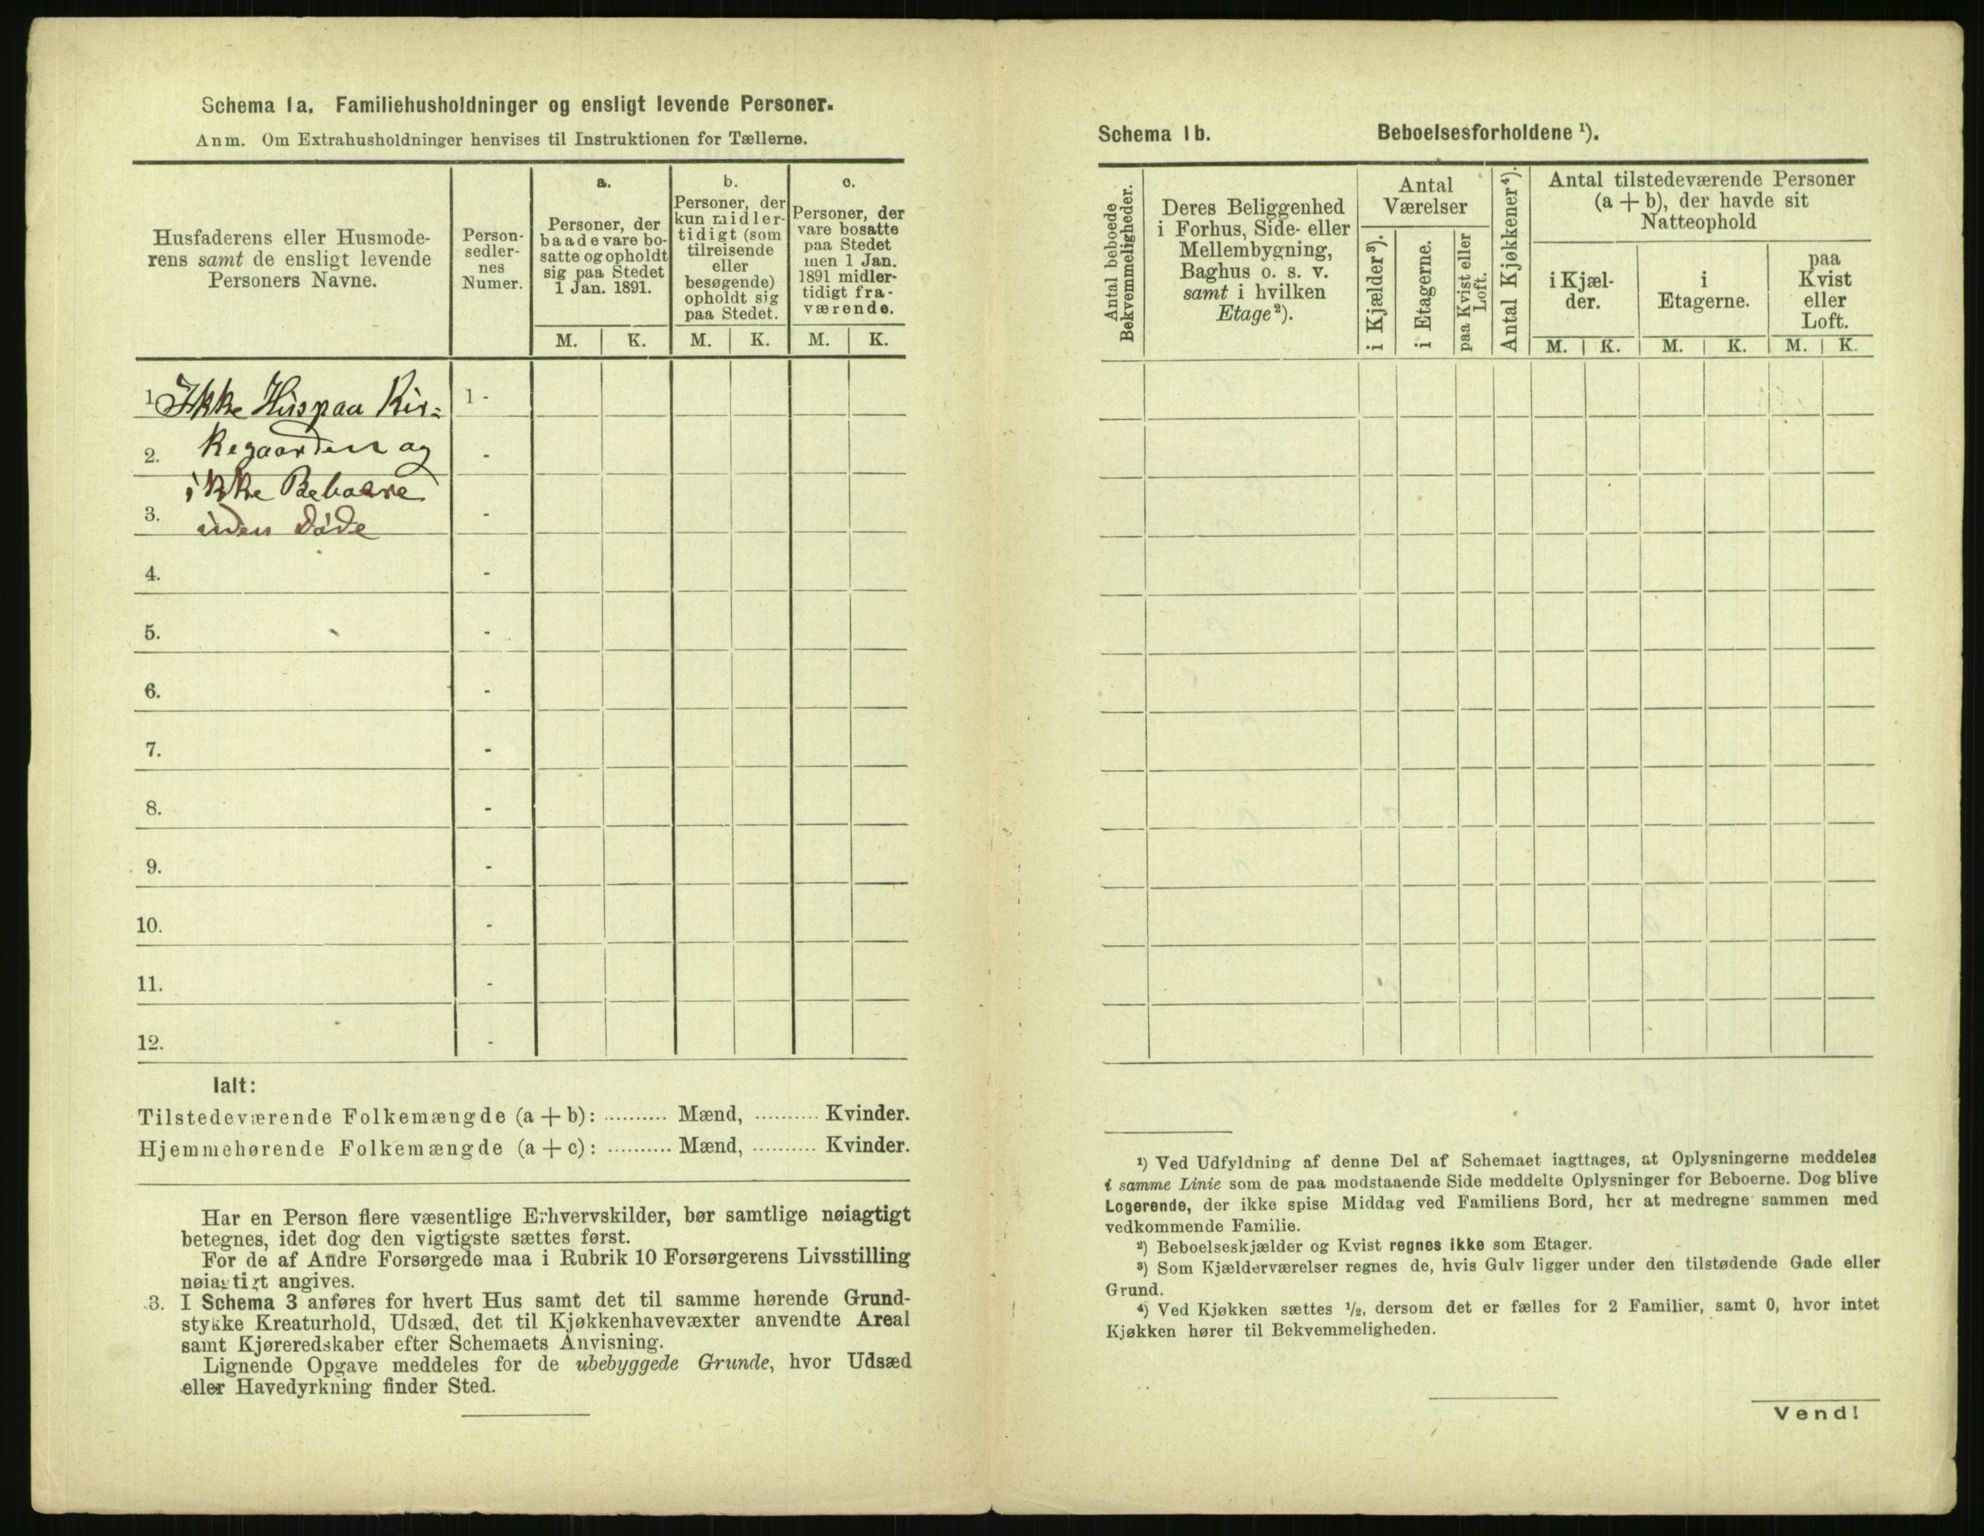 Schema 1a. Familiehusholdninger og ensligt levende Personer.
Anm. Om Extrahusholdninger henvises til Instruktionen for Tællerne.
Husfaderens eller Husmode-
rens samt de ensligt levende
Personers Navne.
Person-
sedler-
nes
Numer.
a.
Personer, der
baade vare bo-
satte og opholdt
sig paa Stedet
1 Jan. 1891.
b.
Personer, der
kun midler-
tidigt (som
tilreisende
eller
besøgende)
opholdt sig
paa Stedet.
c.
Personer, der
vare bosatte
paa Stedet
men 1 Jan.
1891 midler-
tidigt fra-
værende.
M. K. M. K. M. K.
1 Ikke Hus paa Kir= 1 -
2. kegaarden og -
ikke Beboere
3. uden Døde -
4. -
5. -
6. -
7. -
8. -
9. -
10. -
11. -
12. -
Ialt:
Tilstedeværende Folkemængde (a + b): .......... Mænd, .......... Kvinder.
Hjemmehørende Folkemængde (a + c): .......... Mænd, .......... Kvinder.
Har en Person flere væsentlige Erhvervskilder, bør samtlige nøiagtigt
betegnes, idet dog den vigtigste sættes først.
For de af Andre Forsørgede maa i Rubrik 10 Forsørgerens Livsstilling
nøiagtigt angives.
3. I Schema 3 anføres for hvert Hus samt det til samme hørende Grund-
stykke Kreaturhold, Udsæd, det til Kjøkkenhavevæxter anvendte Areal
samt Kjøreredskaber efter Schemaets Anvisning.
Lignende Opgave meddeles for de ubebyggede Grunde, hvor Udsæd
eller Havedyrkning finder Sted.
Schema 1b. Beboelsesforholdene ¹).
Antal beboede
Bekvemmeligheder.
Deres Beliggenhed
i Forhus, Side- eller
Mellembygning,
Baghus o. s. v.
samt i hvilken
Etage²).
Antal
Værelser
i Kjælder³).
i Etagerne.
paa Kvist eller
Loft.
Antal Kjøkkener⁴).
Antal tilstedeværende Personer
(a + b), der havde sit
Natteophold
i Kjæl-
der.
i
Etagerne.
paa
Kvist
eller
Loft.
M. K. M. K. M. K.
¹) Ved Udfyldning af denne Del af Schemaet iagttages, at Oplysningerne meddeles
i samme Linie som de paa modstaaende Side meddelte Oplysninger for Beboerne. Dog blive
Logerende, der ikke spise Middag ved Familiens Bord, her at medregne sammen med
vedkommende Familie.
²) Beboelseskjælder og Kvist regnes ikke som Etager.
³) Som Kjælderværelser regnes de, hvis Gulv ligger under den tilstødende Gade eller
Grund.
⁴) Ved Kjøkken sættes ½, dersom det er fælles for 2 Familier, samt 0, hvor intet
Kjøkken hører til Bekvemmeligheden.
Vend!